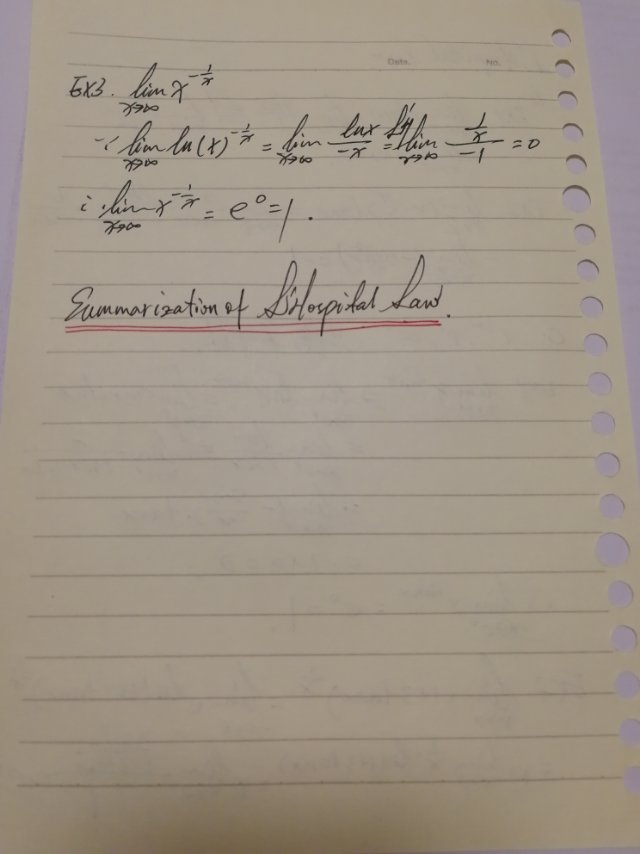 Date. No.
EX3. lim x→∞ x^{-1/x}
∵ lim x→∞ ln(x)^{-1/x} = lim x→∞ lnx/-x = L'H lim x→∞ (1/x)/-1 = 0
∴ lim x→∞ x^{-1/x} = e^0 = 1.
Summarization of L'Hospital Law.